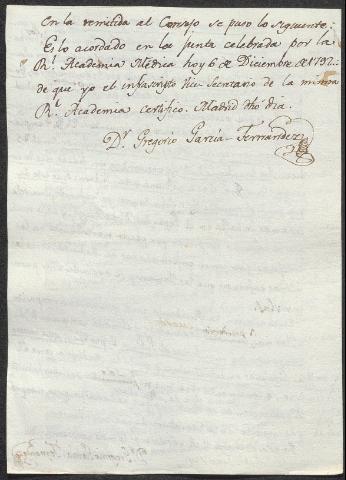 En la remitida al Consejo se puso lo siguiente:
Es lo acordado en la junta celebrada por la
Rl. Academia Medica hoy 6 de Diciembre de 1792:
de que yo el infrascripto Vice-Secretario de la misma
Rl. Academia certifico. Madrid dho dia.
Dr. Gregorio Garcia-Fernandez